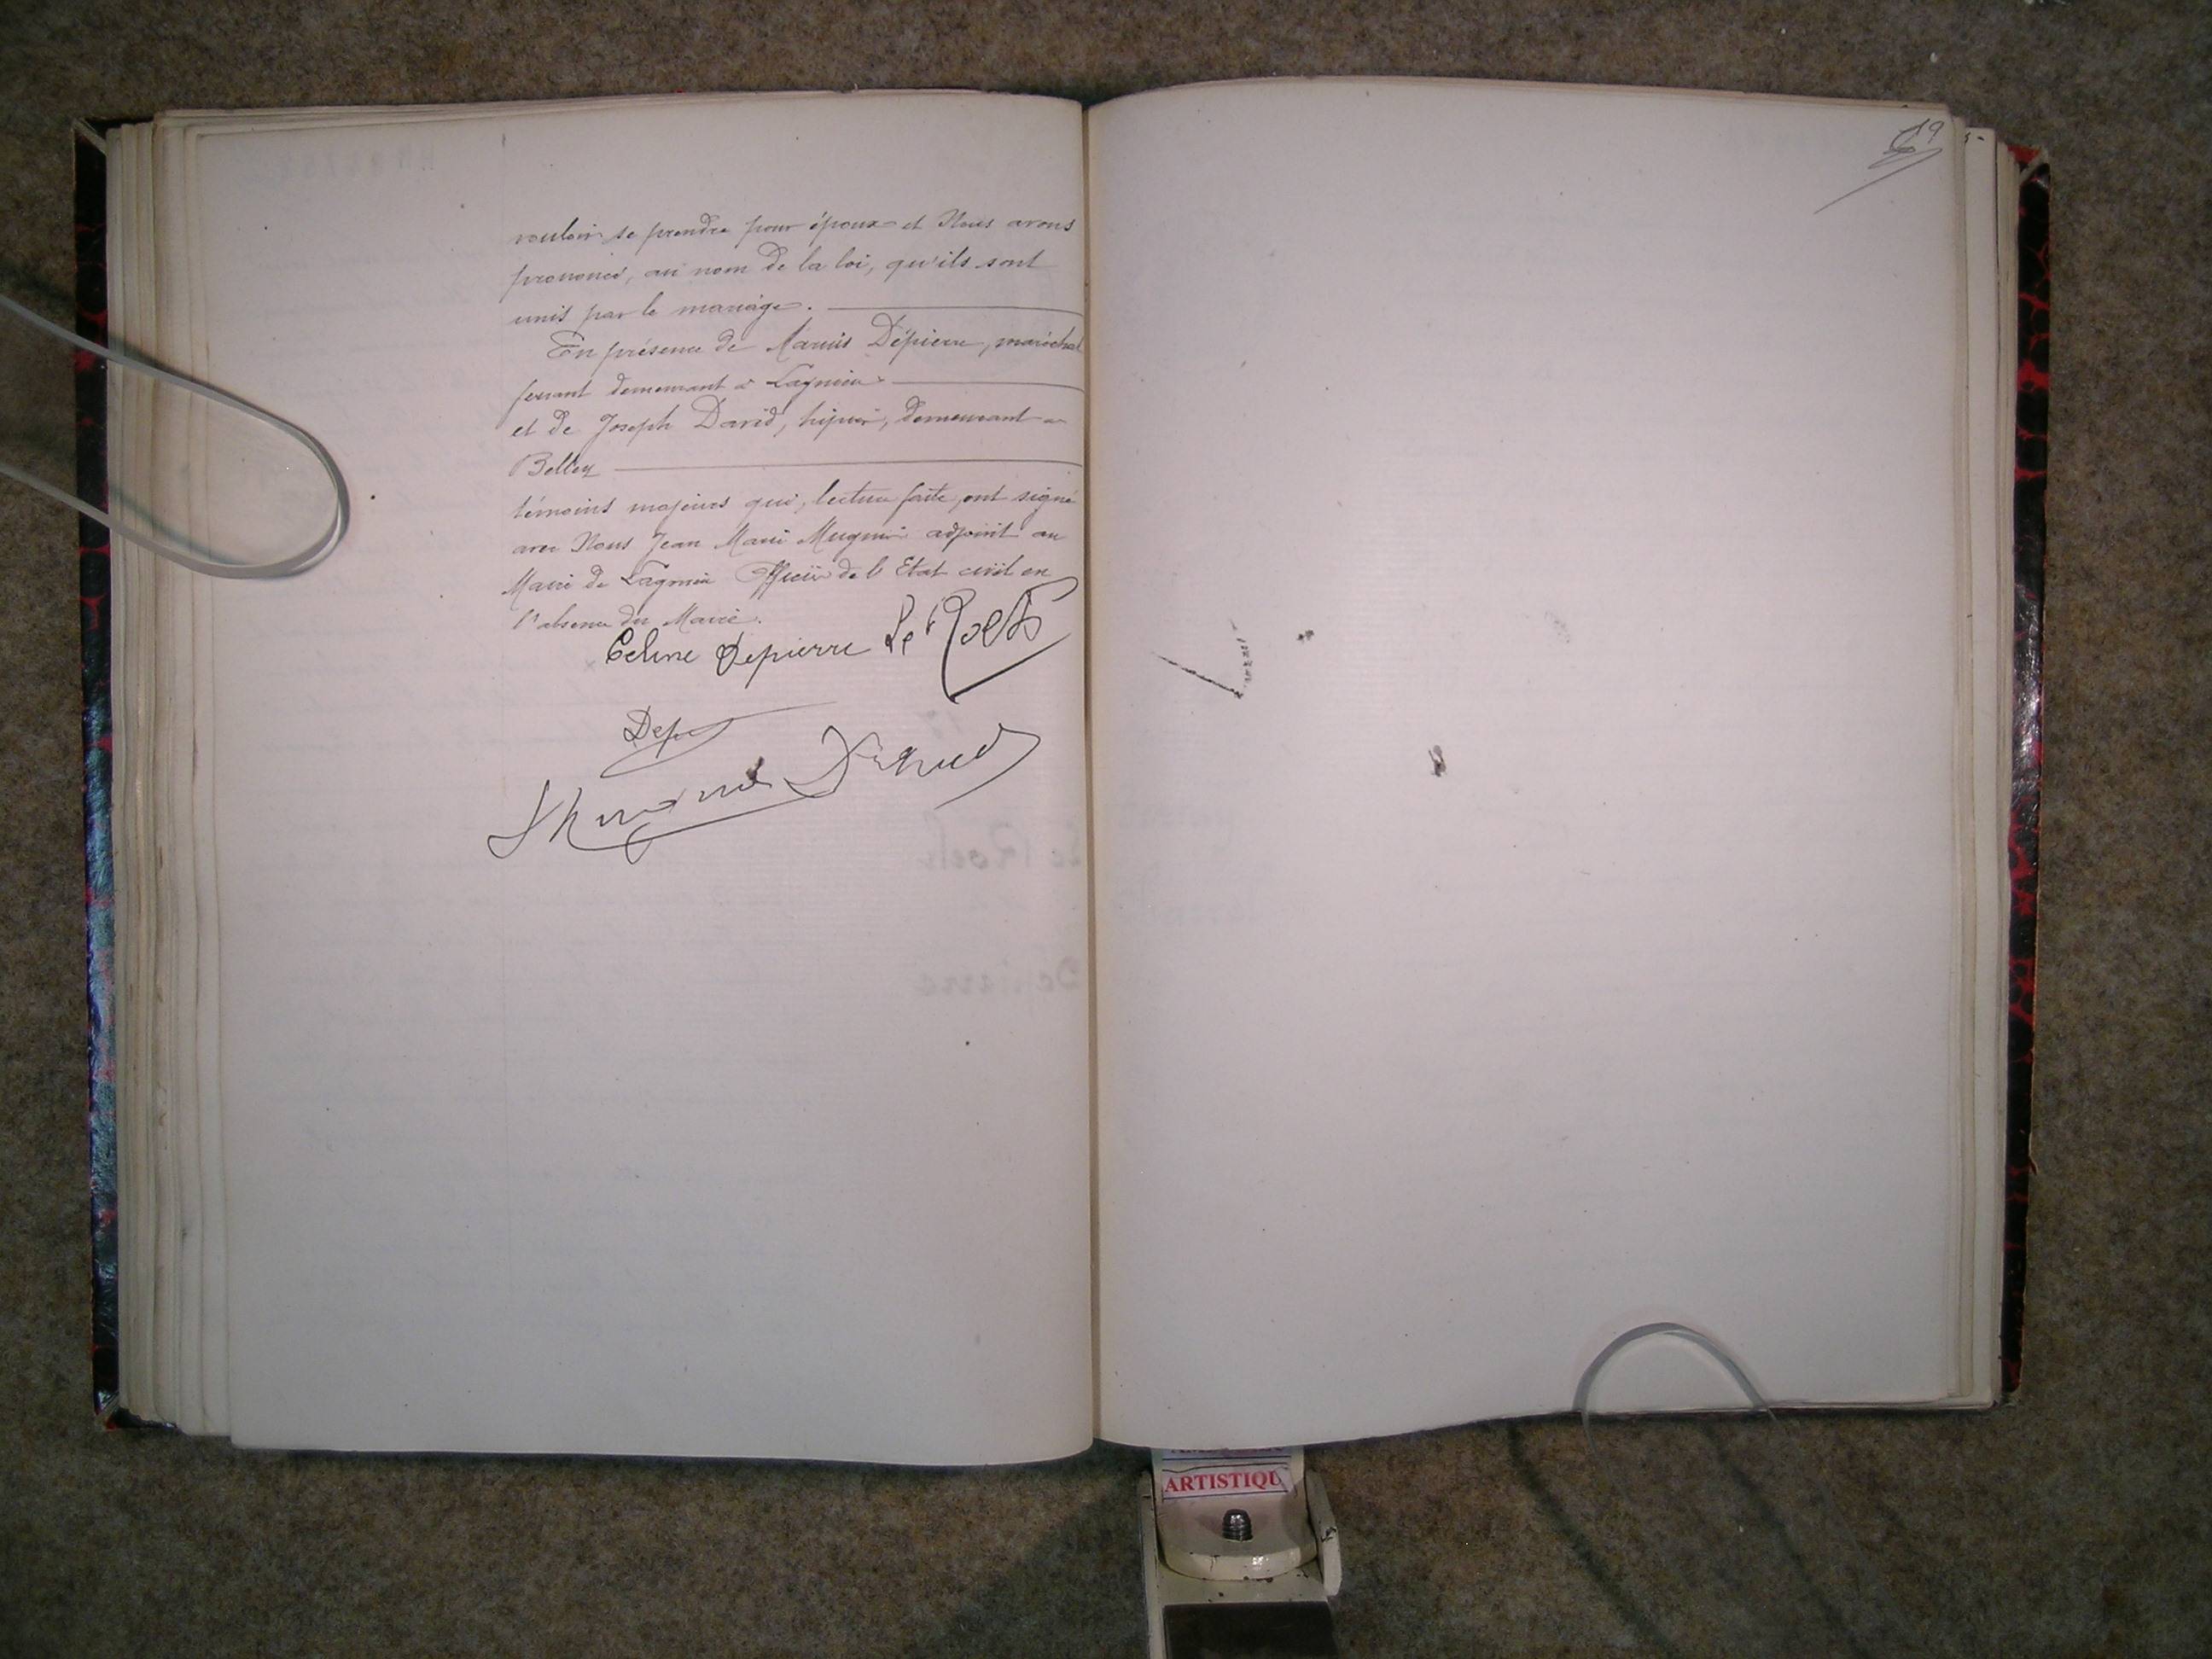 vouloir se prendre pour époux et Nous avons
prononcé, au nom de la loi, qu'ils sont
unis par le mariage.
En présence de Marius Dépierre, maréchal
ferrant demeurant à Lagnieu
et de Joseph David, demeurant à
Belley
témoins majeurs qui, lecture faite, ont signé
avec Nous Jean Marie Mugnier adjoint au
Maire de Lagnieu Officier de l'Etat civil en
l'absence du Maire.
Celine Depierre Le Roch
19
ARTISTIQU